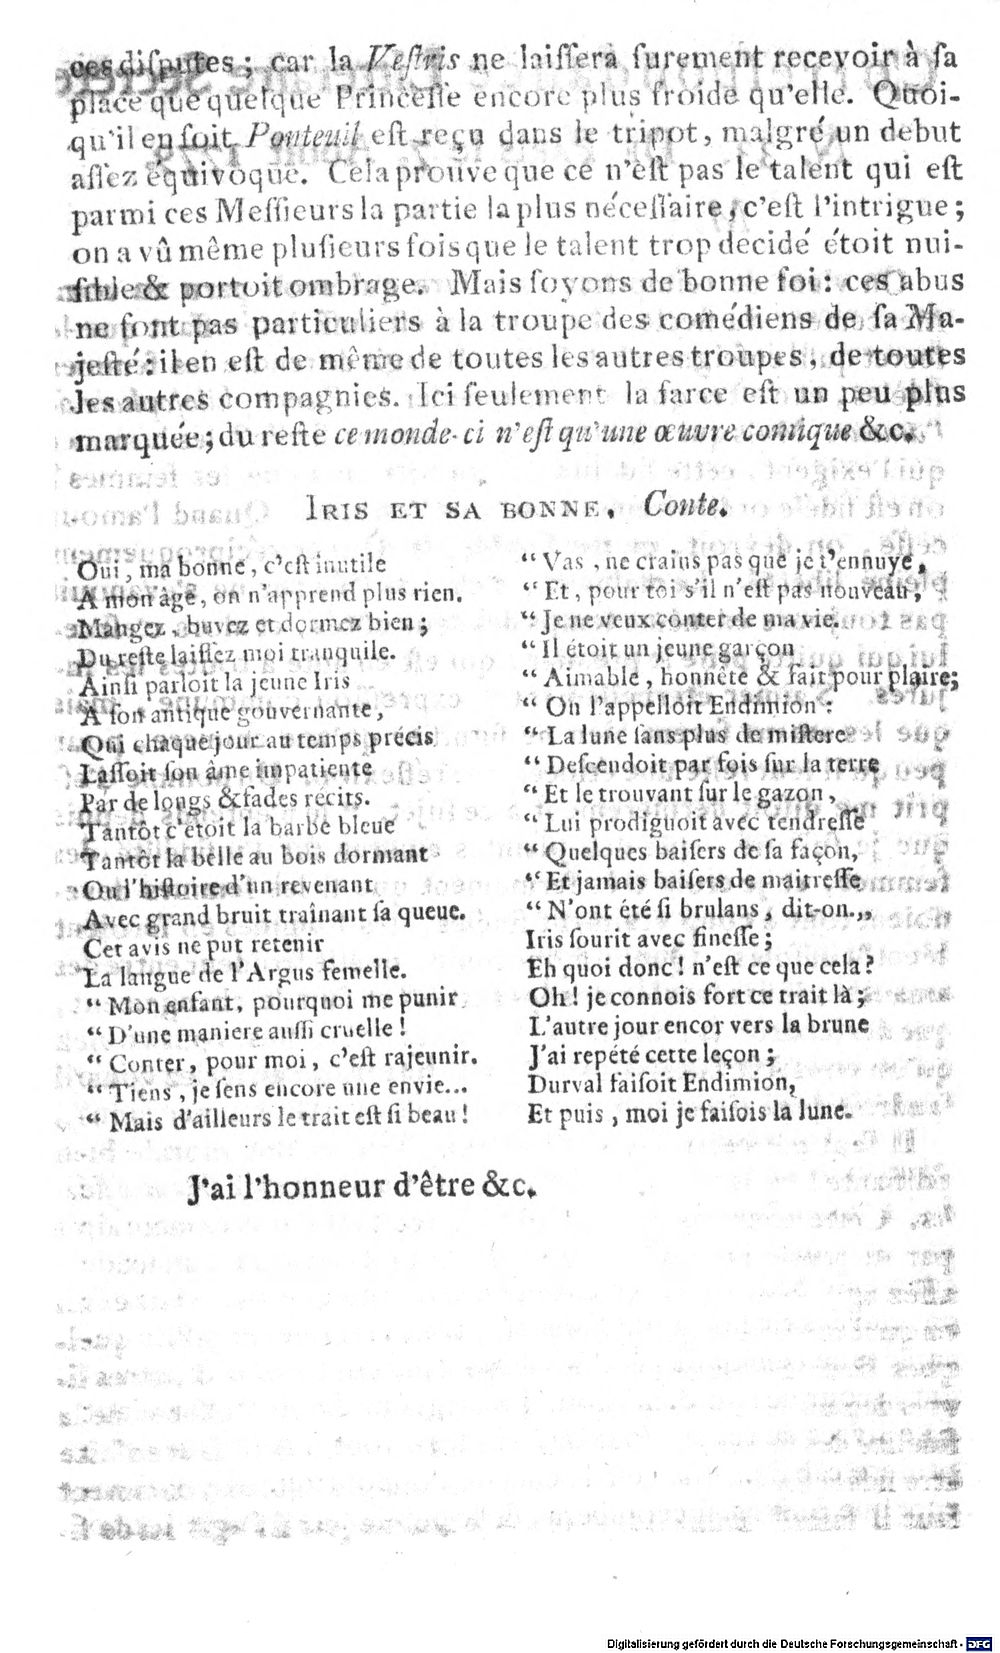 ces diſputes; car la Veſtris ne laiſſera ſurement recevoir à ſa
place que quelque Princeſſe encore plus froide qu'elle. Quoi-
qu'il en ſoit Ponteuil eſt reçu dans le tripot, malgré un debut
aſſez equivoque. Cela prouve que ce n'eſt pas le talent qui eſt
parmi ces Meſſieurs la partie la plus néceſſaire, c'eſt l'intrigue;
on a vû même pluſieurs fois que le talent trop decidé étoit nui-
ſible & portoit ombrage. Mais ſoyons de bonne foi: ces abus
ne ſont pas particuliers à la troupe des comédiens de ſa Ma-
jeſté: il en eſt de même de toutes les autres troupes, de toutes
les autres compagnies. Ici ſeulement la farce eſt un peu plus
marquée; du reſte ce monde-ci n'eſt qu'une œuvre comique &c.
IRIS ET SA BONNE, Conte.
Oui, ma bonne, c'eſt inutile
A mon âge, on n'apprend plus rien.
Mangez, buvez et dormez bien;
Du reſte laiſſez moi tranquile.
Ainſi parloit la jeune Iris
A ſon antique gouvernante,
Qui chaque jour au temps précis
Laſſoit ſon âme impatiente
Par de longs & fades recits.
Tantôt c'étoit la barbe bleue
Tantôt la belle au bois dormant
Ou l'hiſtoire d'un revenant
Avec grand bruit traînant ſa queue.
Cet avis ne put retenir
La langue de l'Argus femelle.
“ Mon enfant, pourquoi me punir
“ D'une maniere auſſi cruelle!
“ Conter, pour moi, c'eſt rajeunir.
“ Tiens, je ſens encore une envie...
“ Mais d'ailleurs le trait eſt ſi beau!
“ Vas, ne crains pas que je t'ennuye,
“ Et, pour toi s'il n'eſt pas nouveau,
“ Je ne veux conter de ma vie.
“ Il étoit un jeune garçon
“ Aimable, honnête & fait pour plaire;
“ On l'appelloit Endimion:
“ La lune ſans plus de miſtere
“ Deſcendoit par fois ſur la terre
“ Et le trouvant ſur le gazon,
“ Lui prodiguoit avec tendreſſe
“ Quelques baiſers de ſa façon,
“ Et jamais baiſers de maitreſſe
“ N'ont été ſi brulans, dit-on.,,
Iris ſourit avec fineſſe;
Eh quoi donc! n'eſt ce que cela?
Oh! je connois fort ce trait là;
L'autre jour encor vers la brune
J'ai repété cette leçon;
Durval faiſoit Endimion,
Et puis, moi je faiſois la lune.
J'ai l'honneur d'être &c.
Digitalisierung gefördert durch die Deutsche Forschungsgemeinschaft - DFG